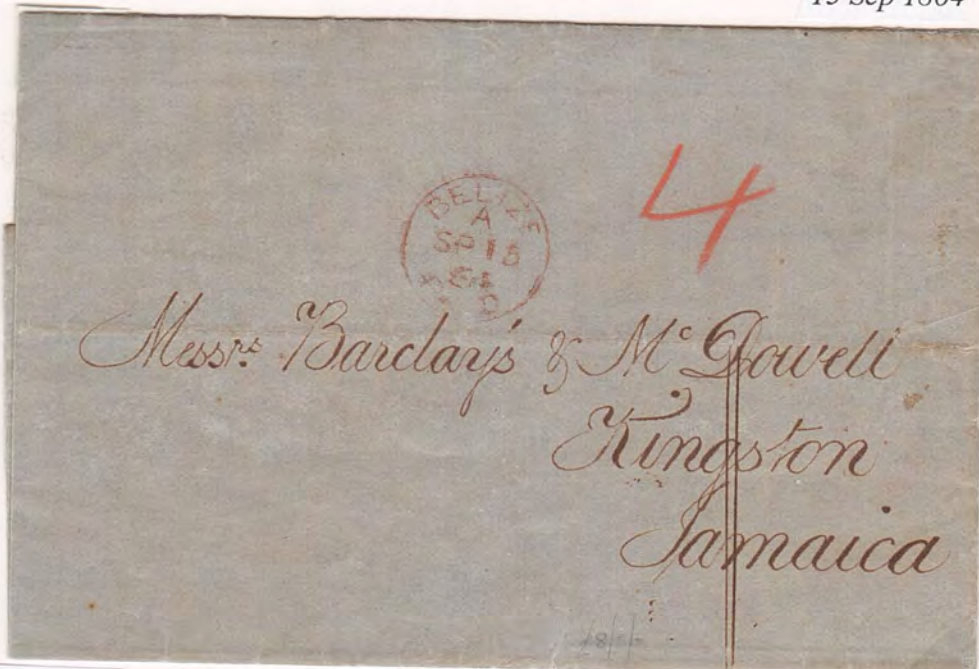 15 Sep 1864
4
BELIZE
A
SP 15
64
Messrs. Barclay's & Mc Dowell
Kingston
Jamaica